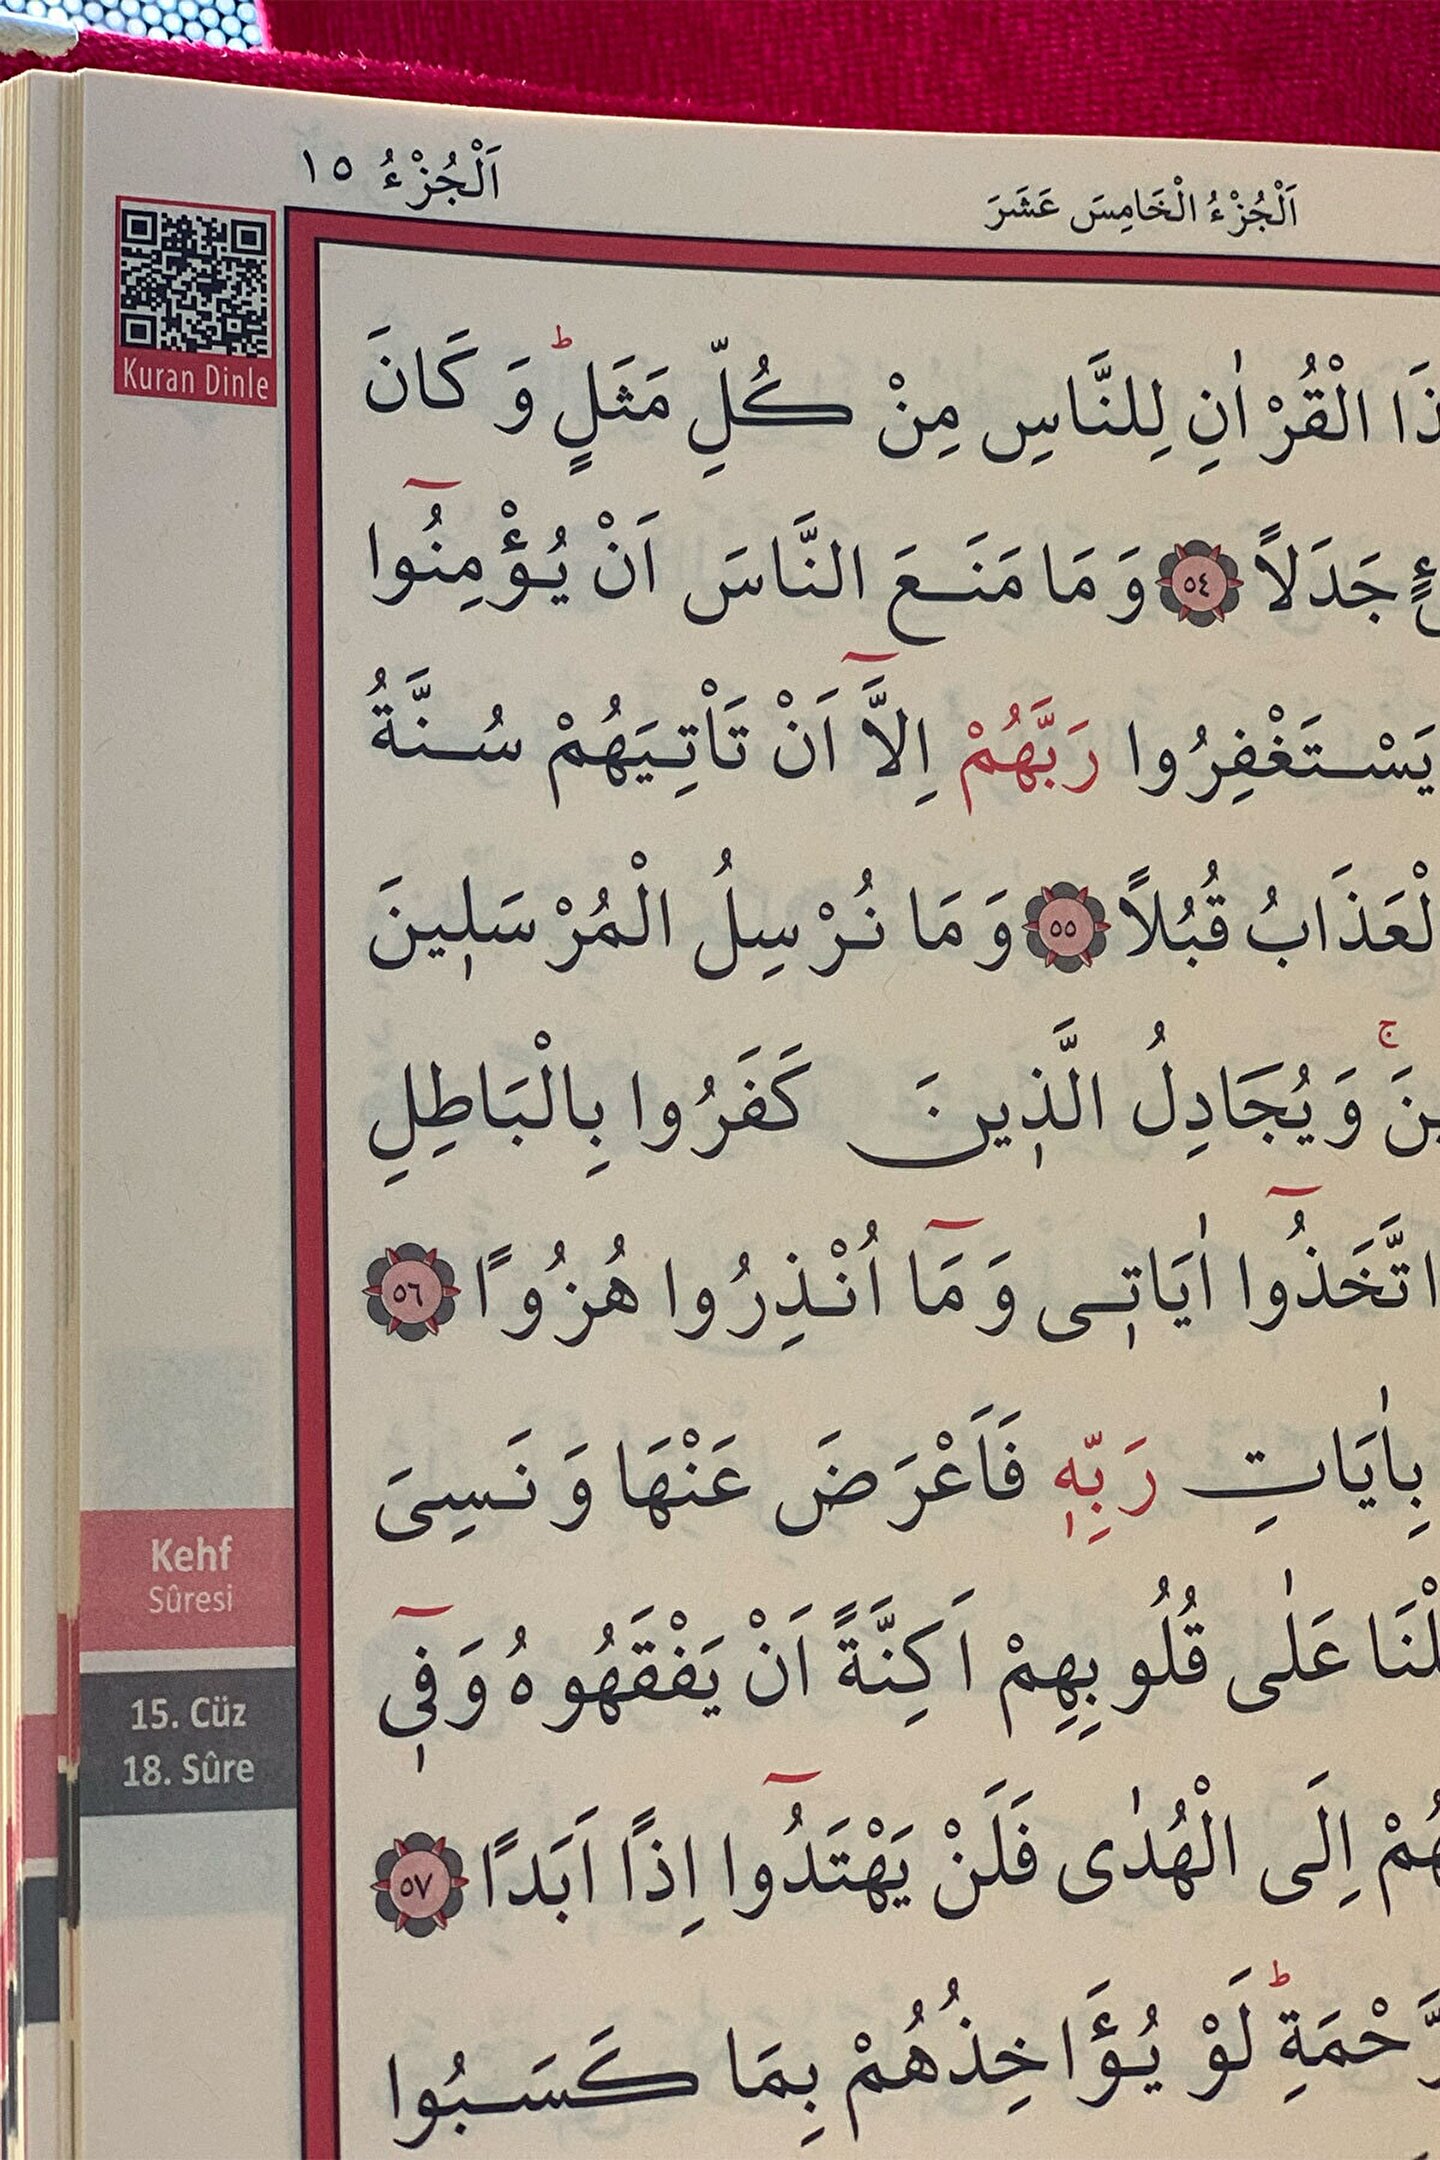 اَلْجُزْءُ الْخَامِسَ عَشَرَ
اَلْجُزْءُ ١٥
Kuran Dinle
الْقُرْاٰنِ لِلنَّاسِ مِنْ كُلِّ مَثَلٍۜ وَكَانَ
جَدَلاً ﴿٥٤﴾ وَمَا مَنَعَ النَّاسَ اَنْ يُؤْمِنُٓوا
يَسْتَغْفِرُوا رَبَّهُمْ اِلَّٓا اَنْ تَاْتِيَهُمْ سُنَّةُ
الْعَذَابُ قُبُلاً ﴿٥٥﴾ وَمَا نُرْسِلُ الْمُرْسَل۪ينَ
وَيُجَادِلُ الَّذ۪ينَ كَفَرُوا بِالْبَاطِلِ
اتَّخَذُٓوا اٰيَات۪ي وَمَٓا اُنْذِرُوا هُزُوًا ﴿٥٦﴾
بِاٰيَاتِ رَبِّه۪ فَاَعْرَضَ عَنْهَا وَنَسِيَ
عَلٰى قُلُوبِهِمْ اَكِنَّةً اَنْ يَفْقَهُوهُ وَف۪ٓي
اِلَى الْهُدٰى فَلَنْ يَهْتَدُٓوا اِذًا اَبَدًا ﴿٥٧﴾
لَوْ يُؤَاخِذُهُمْ بِمَا كَسَبُوا
Kehf
Sûresi
15. Cüz
18. Sûre